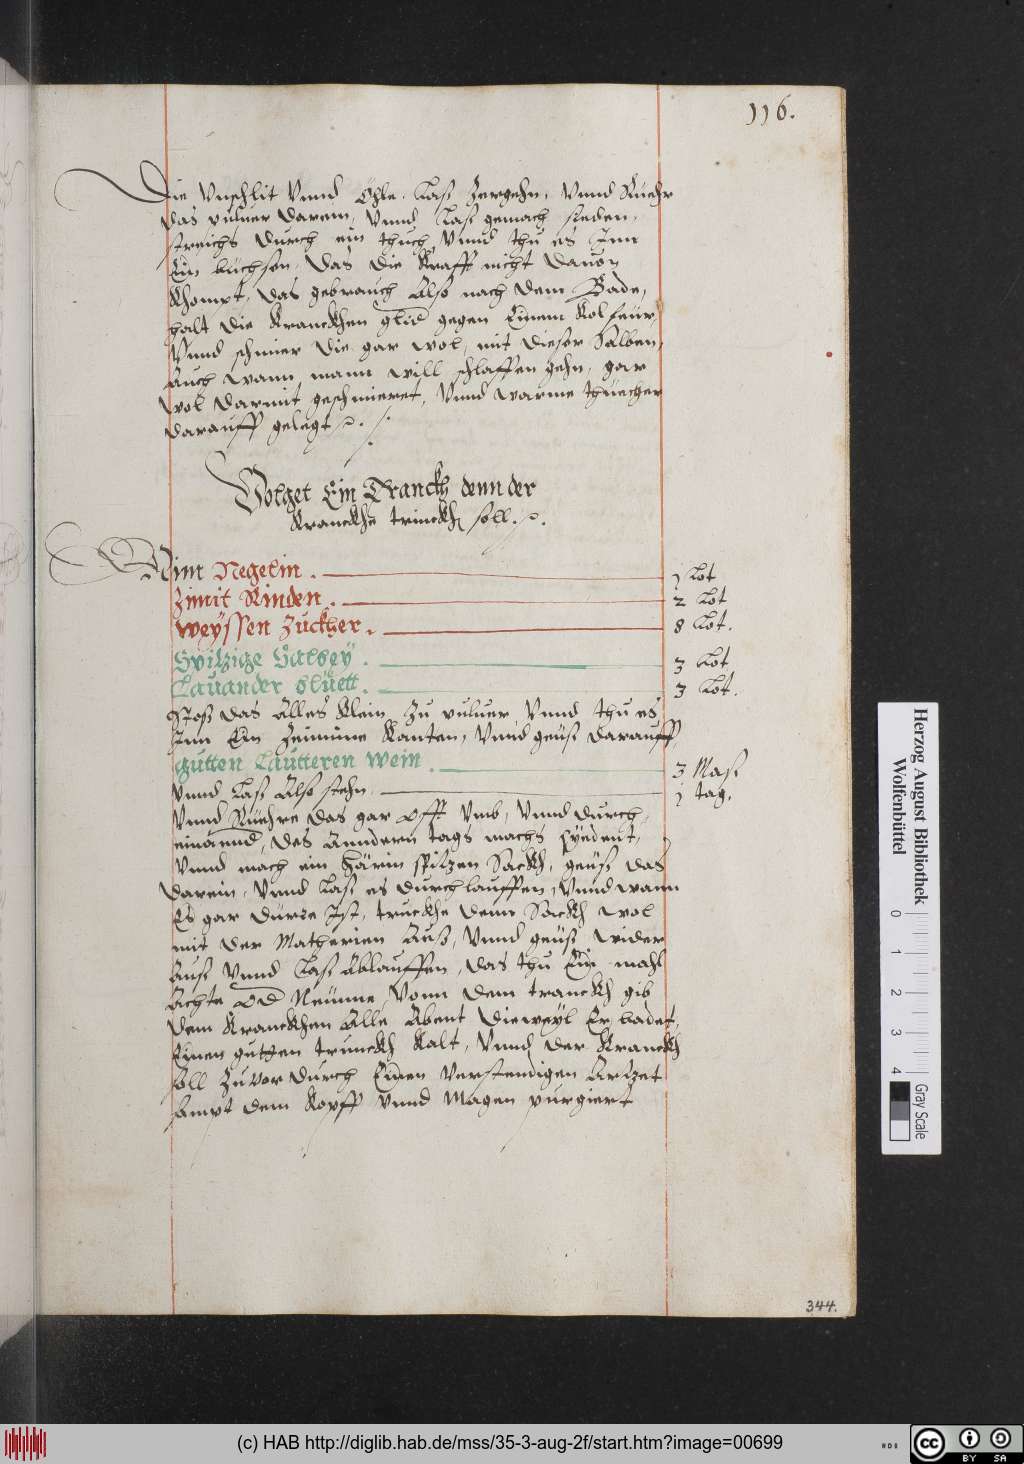 116.
Die Vnschlit Vnnd Öhle, Laß Zergehn, Vnnd Ruehr
das puluer darein, Vnnd Laß gemach sieden,
streichs durch ein thuch, Vnnd thu es Jnn
Ein büchsen, Das die Krafft nicht dauon
Khompt, das gebrauch Also nach dem Bade,
halt die Kranckhen glid gegen Einem Kolfeür,
Vnnd schmier die gar wol, mit dieser Salben,
Auch wann mann will schlaffen gehn, gar
wol darmit geschmieret, Vnnd warme thüecher
darauff gelegt
Volget Ein Tranckh denn der
Kranckhe trinckh soll.
Nim Negelin. 1 Lot
Zimit Rinden. 2 Lot
Weyssen Zuckher. 8 Lot.
Spitzige Salbey. 3 Lot
Lauander blüett. 3 Lot.
Stoß das Alles Klein Zu puluer, Vnnd thu es
Jnn Ein Zeinnine Kanten, Vnnd geüß darauff,
gutten Lautteren Wein. 3 Maß
Vnnd Laß Also stehn 1 tag,
Vnnd Rüehre das gar Offt Vmb, Vnnd durch,
einannd, des Anndern tags machs Syedent,
Vnnd mach ein härin spitzen Sackh, geüß das
darein, Vnnd Laß es durchlauffen, Vnnd wann
Es gar dürre Jst, truckhe denn Sackh wol
mit der Matherien Auß, Vnnd geüß wider
Auß Vnnd Laß Ablauffen, das thu Ein mahl
Achte od Neünne, Vonn dem tranckh gib
dem Kranckhen Alle Abent dieweyl Er badet,
Einen gutten trunckh Kalt, Vnnd der Kranckh
soll Zuuor durch Einen Verstendigen Artzet
sampt dem Kopff Vnnd Magen purgiert
344.
Herzog August Bibliothek
Wolfenbüttel
0 1 2 3 4
Gray Scale
(c) HAB http://diglib.hab.de/mss/35-3-aug-2f/start.htm?image=00699
cc BY SA